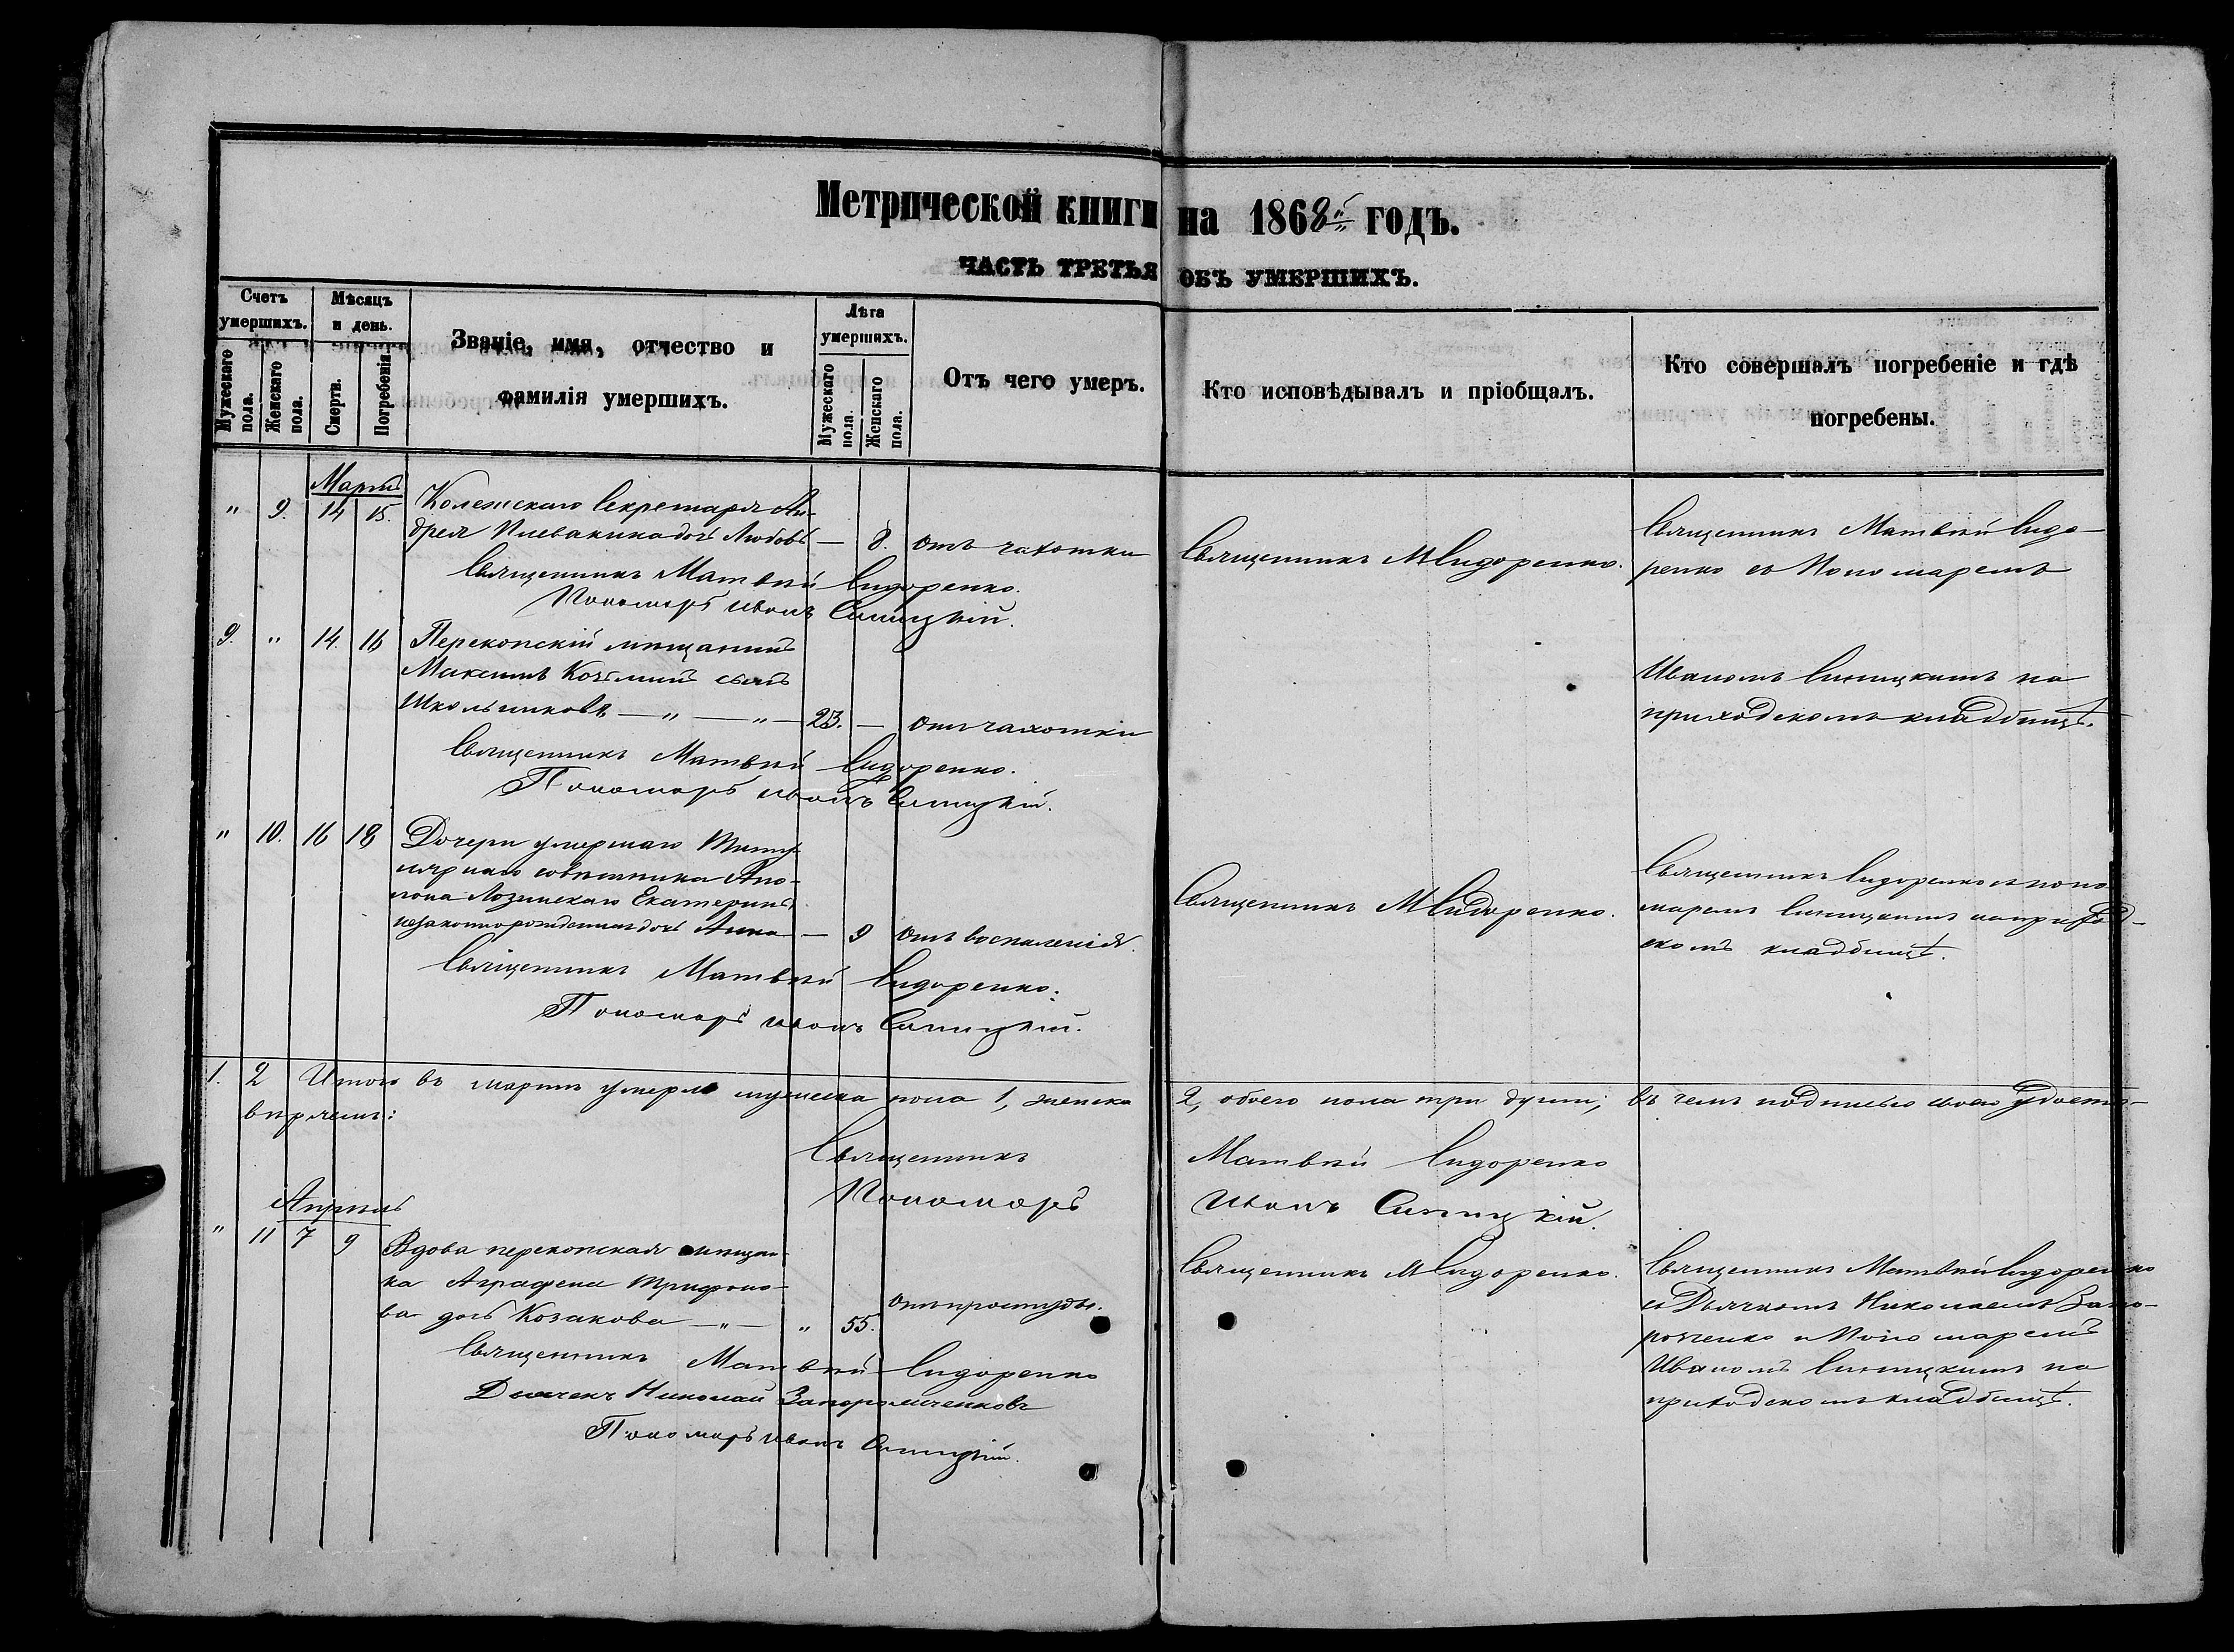 Метрической книги на 1868й годъ.
ЧАСТЬ ТРЕТЬЯ ОБЪ УМЕРШИХЪ.
Счетъ умершихъ.
Мужескаго пола.
Женскаго пола.
Мѣсяцъ и день.
Смерти.
Погребенія
Званіе, имя, отчество и
фамилія умершихъ.
Лѣта умершихъ.
Мужескаго пола.
Женскаго пола.
Отъ чего умеръ.
Кто исповѣдывалъ и пріобщалъ.
Кто совершалъ погребеніе и гдѣ
погребены.
Мартъ
" 9. 14 15. Колежскаго Секретаря Ан-
дрея Плевакина дочь Любовь — 8. отъ чахотки
Священникъ М Сидоренко.
Священникъ Матвѣй Сидо-
ренко съ Пономаремъ
Священникъ Матвѣй Сидоренко.
Пономарь Иванъ Синицкій.
9. " 14. 16 Перекопскій мѣщанинъ
Максимъ Козьминъ сынъ
Школьниковъ — " — " — 23. — отъ чахотки
Иваномъ Синицкимъ на
приходскомъ кладбищѣ.
Священникъ Матвѣй Сидоренко.
Пономарь Иванъ Синицкій.
" 10. 16 18 Дочери умершаго Титу-
лярнаго совѣтника
Лозинскаго Екатерины,
незаконнорожденная дочь Анна — 9 отъ воспаленія.
Священникъ М Сидоренко.
Священникъ Сидоренко съ поно-
маремъ Синицкимъ на приход-
скомъ кладбищѣ.
Священникъ Матвѣй Сидоренко.
Пономарь Иванъ Синицкій.
1. 2 Итого въ мартѣ умерло мужеска пола 1, женска 2, обоего пола три души; въ чемъ подписью своею удосто-
вѣряемъ:
Священникъ Матвѣй Сидоренко
Пономарь Иванъ Синицкій.
Апрѣль
" 11 7 9 Вдова перекопская мѣщан-
ка Аграфена Трифоно-
ва дочь Козакова — " — " 55. отъ простуды.
Священникъ М Сидоренко.
Священникъ Матвѣй Сидоренко
съ Дьячкомъ Николаемъ Запо-
и Пономаремъ
Иваномъ Синицкимъ на
приходскомъ кладбищѣ.
Священникъ Матвѣй Сидоренко
Дьячекъ Николай
Пономарь Иванъ Синицкій.